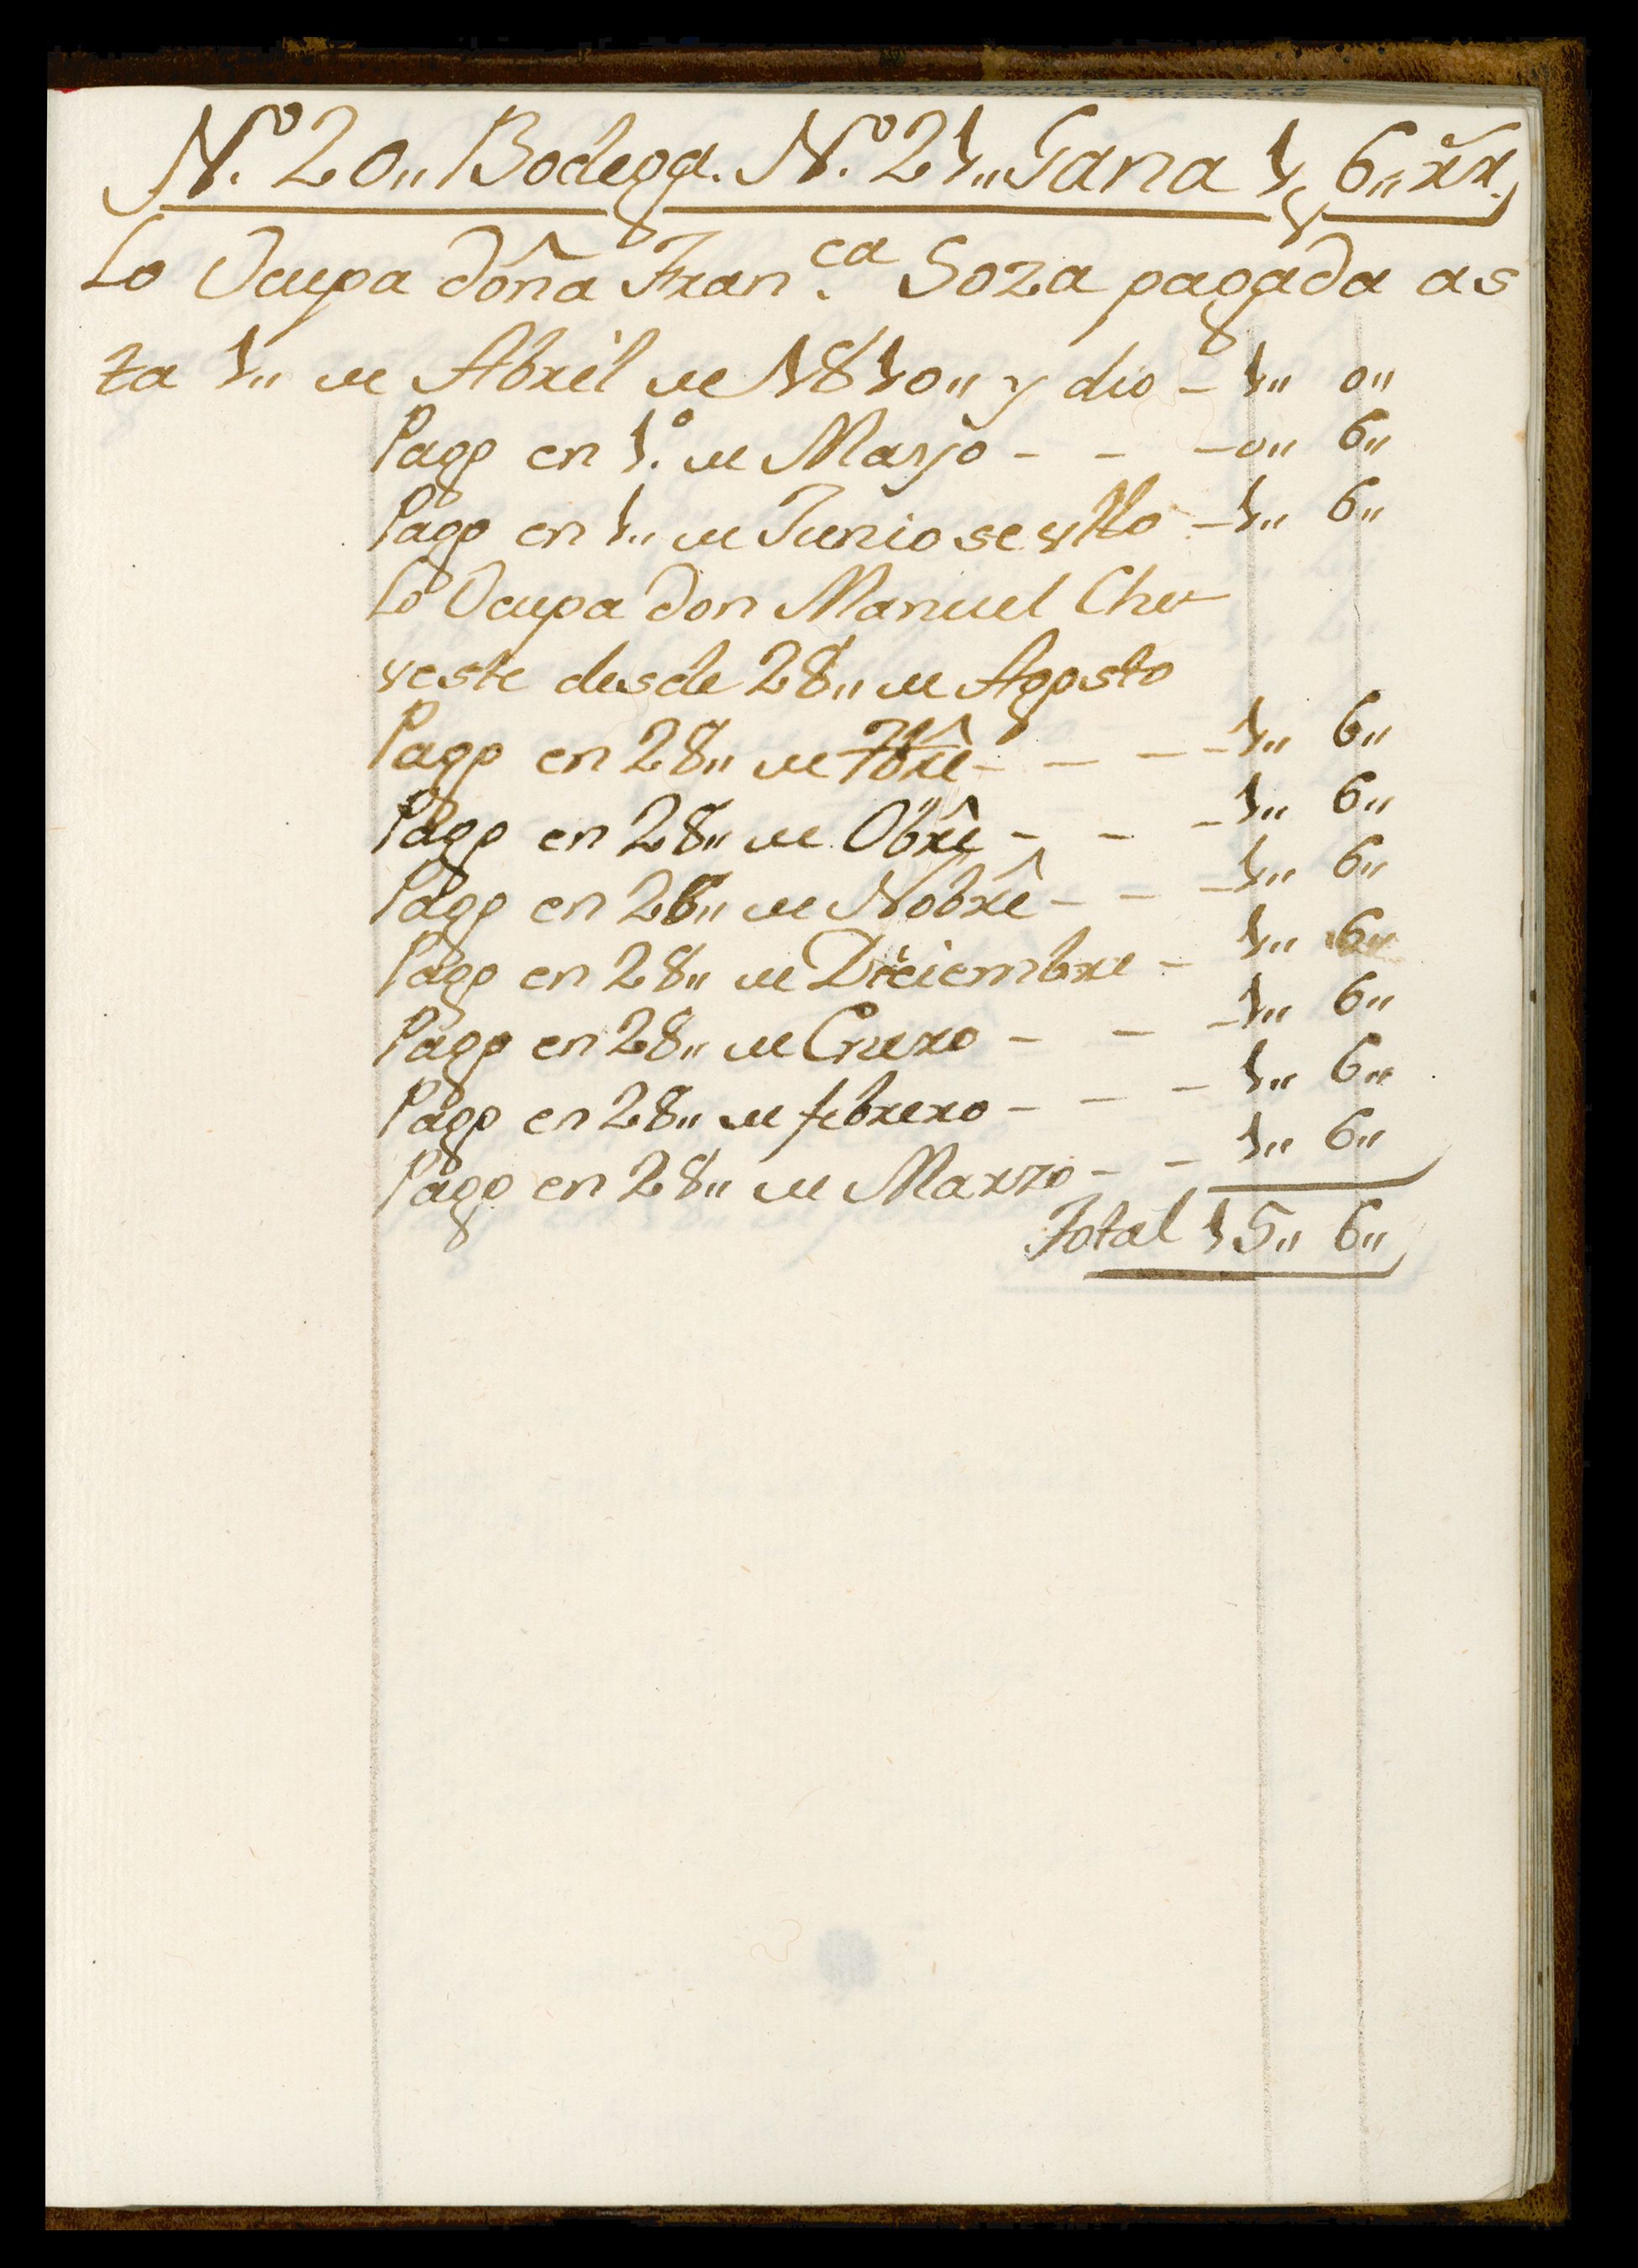 N.º 20,, Bodega. N.º 21,, Gana 1, 6,, rr.
Lo Ocupa doña Fran.ca Soza pagada as
ta 1,, de Abril de 1810,, y dio - 1,, 0,,
Pago en 1.º de Mayo - - - 0,, 6,,
Pago en 1,, de Junio se - 1,, 6,,
Lo Ocupa don Manuel Che
veste desde 28,, de Agosto
Pago en 28,, de 7bre - - - 1,, 6,,
Pago en 28,, de Obre - - - 1,, 6,,
Pago en 28,, de Nobre - - - 1,, 6,,
Pago en 28,, de Diciembre - 1,, 6,,
Pago en 28,, de Enero - - - 1,, 6,,
Pago en 28,, de febrero - - - 1,, 6,,
Pago en 28,, de Marzo - - 1,, 6,,
Total 15,, 6,,